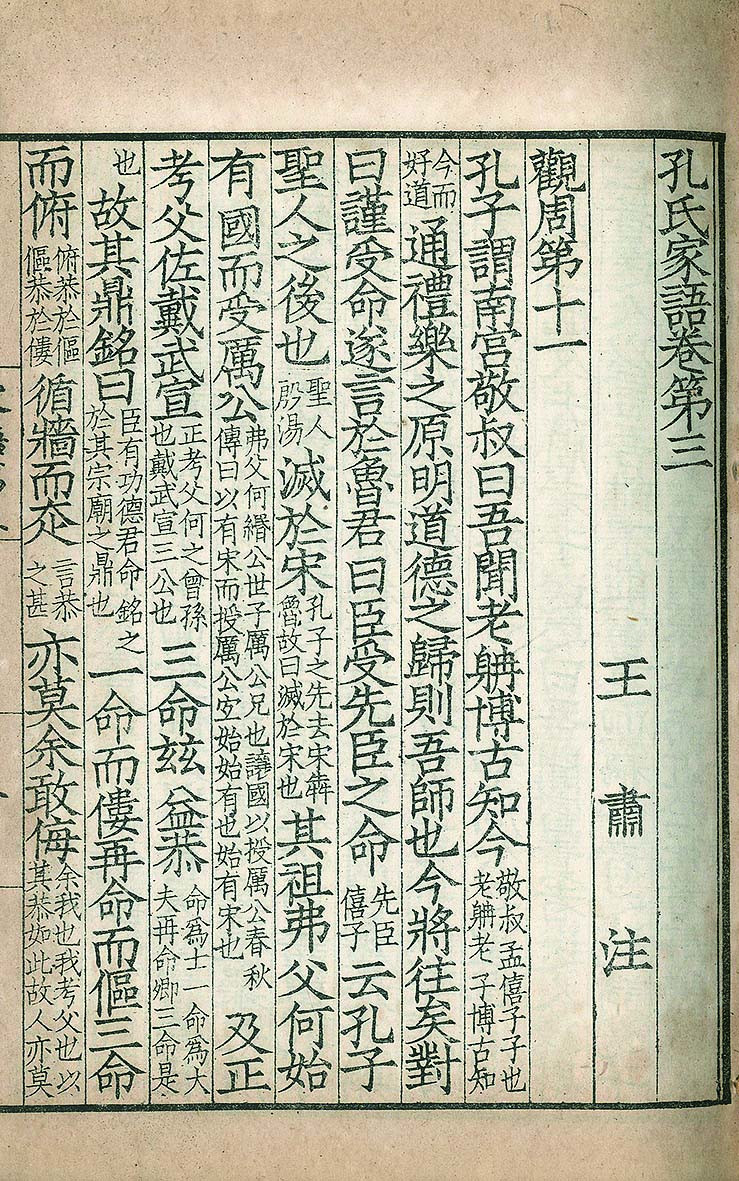 孔氏家語卷第三
王肅注
觀周第十一
孔子謂南宮敬叔曰吾聞老聃博古知今敬叔孟僖子子也老聃老子博古知
今而好道通禮樂之原明道德之歸則吾師也今將往矣對
曰謹受命遂言於魯君曰臣受先臣之命先臣僖子云孔子
聖人之後也聖人殷湯滅於宋孔子之先去宋犇魯故曰滅於宋也其祖弗父何始
有國而受厲公弗父何緡公世子厲公兄也讓國以授厲公春秋傳曰以有宋而授厲公宐始始有也始有宋也及正
考父佐戴武宣正考父何之曾孫也戴武宣三公也三命兹益恭命爲士一命爲大夫再命卿三命是
也故其鼎銘曰臣有功德君命銘之於其宗廟之鼎也一命而僂再命而傴三命
而俯俯恭於傴傴恭於僂循牆而走言恭之甚亦莫余敢侮余我也我考父也以其恭如此故人亦莫